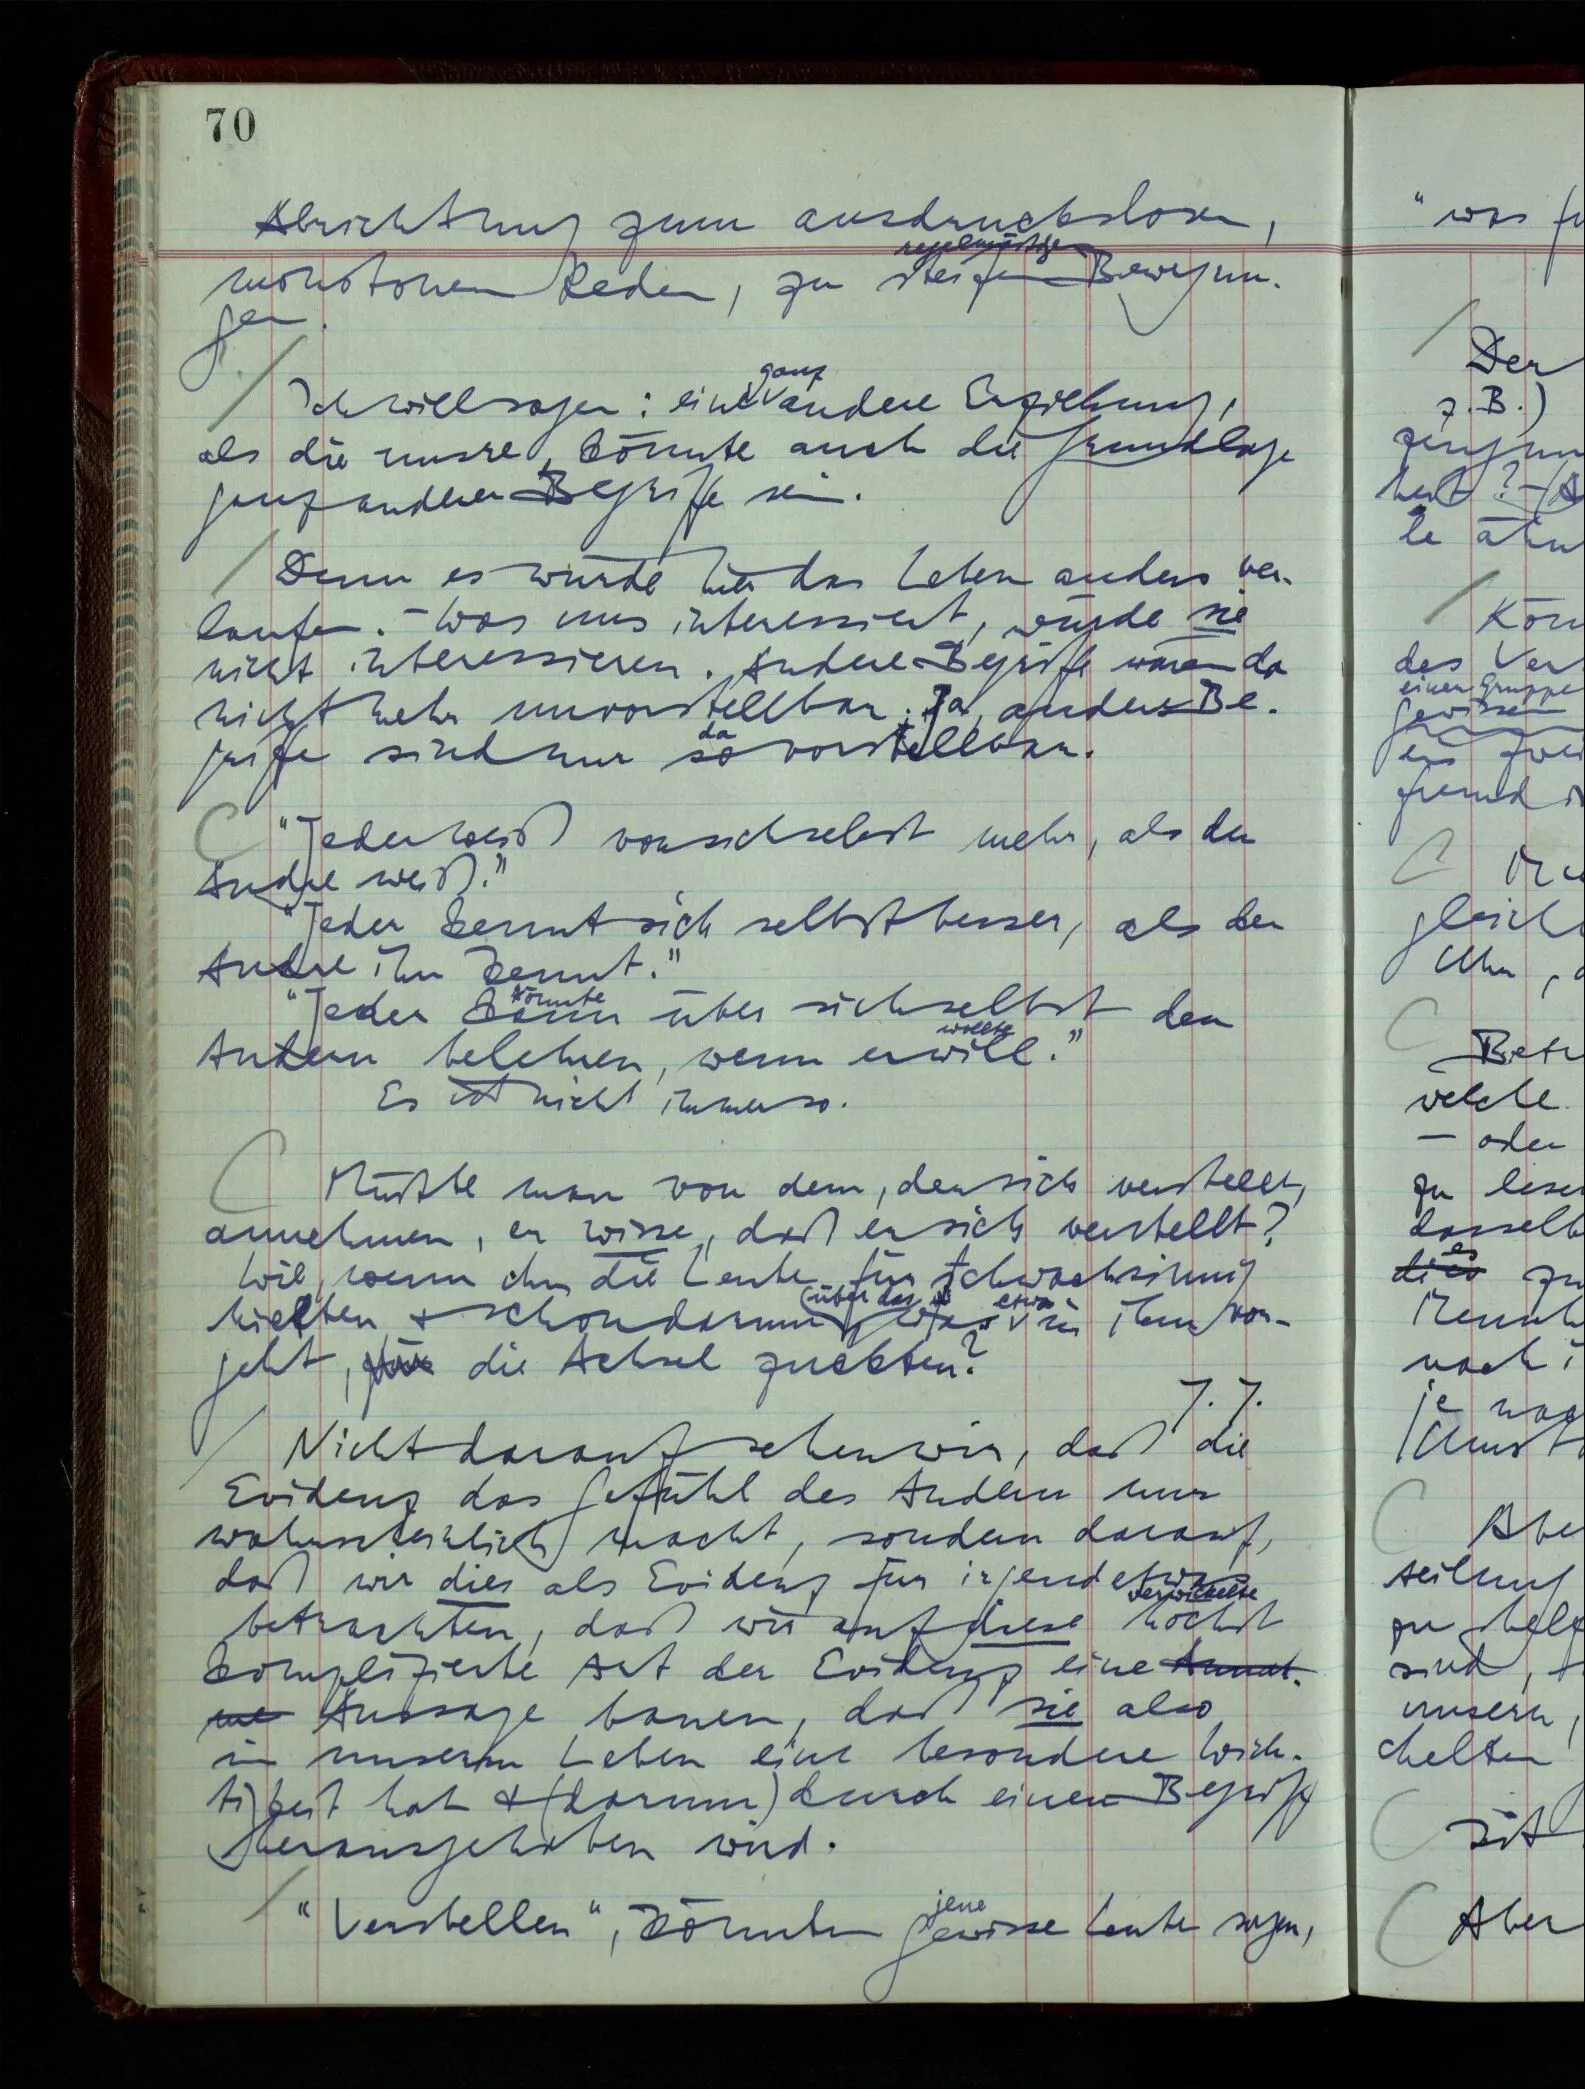 70
Abrichtung zum ausdruckslosen,
regelmäßige
monotonen Reden, zu steifen Bewegun-
gen.
ganz
Ich will sagen: eine andere Erziehung,
als die unsre, könnte auch die Grundlage
ganz anderer Begriffe sein.
Denn es würde hier das Leben anders ver-
laufen. – Was uns interessiert, würde sie
nicht interessieren. Andere Begriffe wären da
nicht mehr unvorstellbar. Ja, andere Be-
da
griffe sind nur so vorstellbar.
"Jeder weiß von sich selbst mehr, als der
Andre weiß."
"Jeder kennt sich selbst besser, als der
Andre ihn kennt."
könnte
"Jeder kann über sich selbst den
wollte
Andern belehren, wenn er will."
Es ist nicht immer so.
Müßte man von dem, der sich verstellt,
annehmen, er wisse, daß er sich verstellt?
Wie, wenn ihn die Leute für schwachsinnig
(über das etwa
hielten & schon darum, was in ihm vor-
geht, die Achsel zuckten?
7. 7.
Nicht darauf sehen wir, daß die
Evidenz das Gefühl des Andern nur
wahrscheinlich macht, sondern darauf,
daß wir dies als Evidenz für irgend etwas
verwickelte
betrachten, daß wir auf diese höchst
komplizierte Art der Evidenz eine Annah-
me Aussage bauen, daß sie also
in unserm Leben eine besondere Wich-
tigkeit hat & (darum) durch einen Begriff
herausgehoben wird.
jene
"Verstellen", könnten gewisse Leute sagen,
"was
Der
z.B.)
le
Kön
des Ver
einer Gruppe
gewissen
fremd
gleich
Uhr,
Betr
welche
– oder
zu lesen
dasselb
es
dies zu
noch i
je nac
Abe
teilung
zu helf
sind,
unsern,
chelten
Ist
Aber